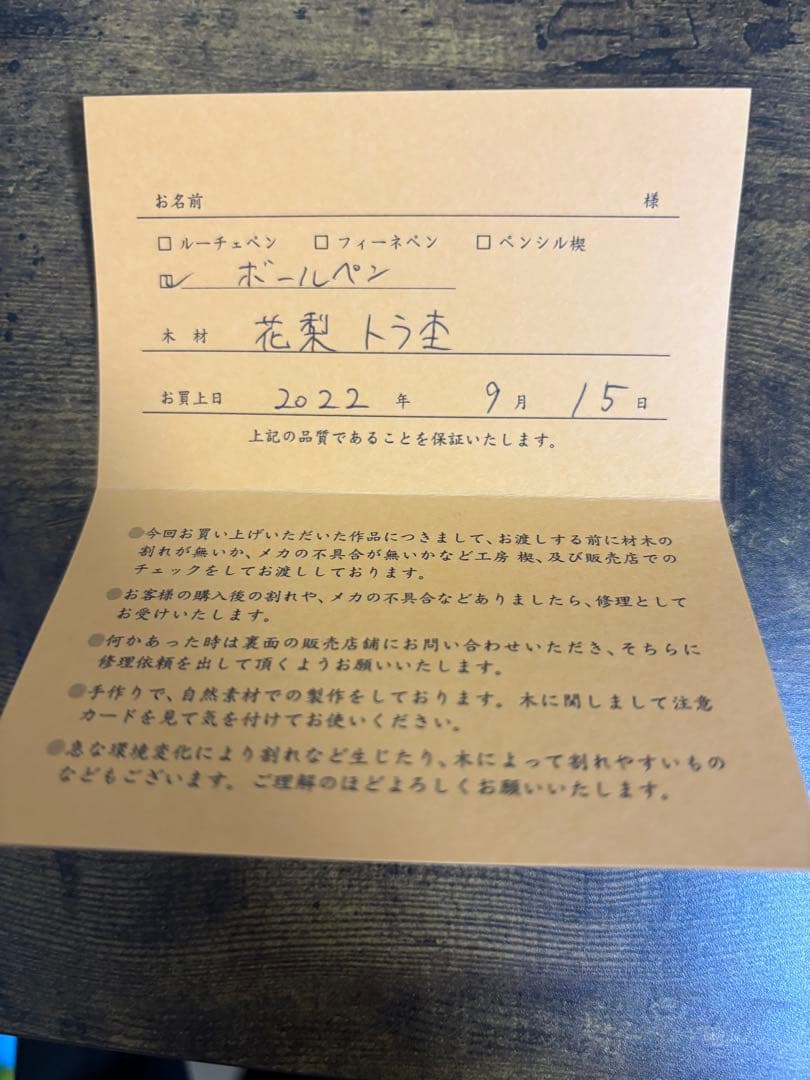 お名前 様
□ ルーチェペン □ フィーネペン □ ペンシル楔
☑ ボールペン
木材 花梨 トラ杢
お買上日 2022 年 9 月 15 日
上記の品質であることを保証いたします。
●今回お買い上げいただいた作品につきまして、お渡しする前に材木の
割れが無いか、メカの不具合が無いかなど工房 楔、及び販売店での
チェックをしてお渡ししております。
●お客様の購入後の割れや、メカの不具合などありましたら、修理として
お受けいたします。
●何かあった時は裏面の販売店舗にお問い合わせいただき、そちらに
修理依頼を出して頂くようお願いいたします。
●手作りで、自然素材での製作をしております。木に関しまして注意
カードを見て気を付けてお使いください。
●急な環境変化により割れなど生じたり、木によって割れやすいもの
などもございます。ご理解のほどよろしくお願いいたします。